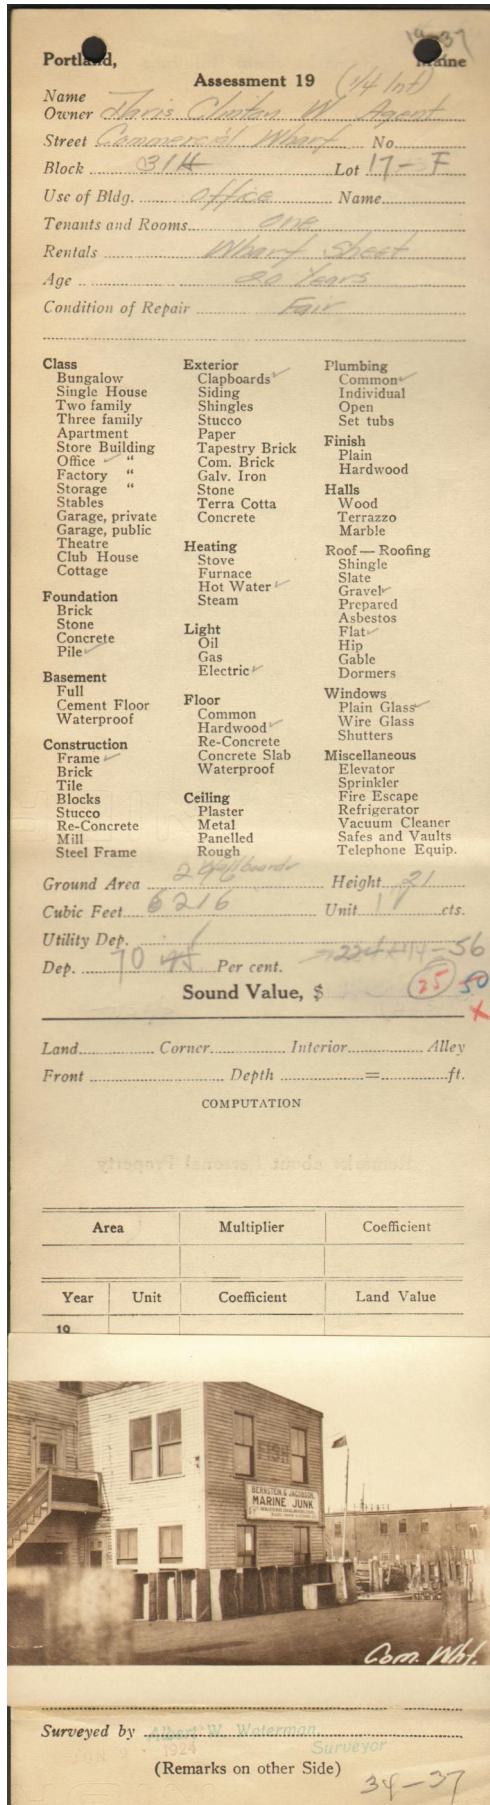 19-37
Portland, Maine
Assessment 19 (1/4 Int)
Name
Owner Davis Clinton W Agent
Street Commercial Wharf No.
Block 31H Lot 17-F
Use of Bldg. office Name
Tenants and Rooms one
Rentals Wharf Sheet
Age 20 Years
Condition of Repair Fair
Class
Bungalow
Single House
Two family
Three family
Apartment
Store Building
Office ✓ "
Factory "
Storage "
Stables
Garage, private
Garage, public
Theatre
Club House
Cottage
Foundation
Brick
Stone
Concrete
Pile ✓
Basement
Full
Cement Floor
Waterproof
Construction
Frame ✓
Brick
Tile
Blocks
Stucco
Re-Concrete
Mill
Steel Frame
Exterior
Clapboards ✓
Siding
Shingles
Stucco
Paper
Tapestry Brick
Com. Brick
Galv. Iron
Stone
Terra Cotta
Concrete
Heating
Stove
Furnace
Hot Water ✓
Steam
Light
Oil
Gas
Electric ✓
Floor
Common
Hardwood ✓
Re-Concrete
Concrete Slab
Waterproof
Ceiling
Plaster
Metal
Panelled
Rough
Wallboards
Plumbing
Common ✓
Individual
Open
Set tubs
Finish
Plain
Hardwood
Halls
Wood
Terrazzo
Marble
Roof — Roofing
Shingle
Slate
Gravel ✓
Prepared
Asbestos
Flat ✓
Hip
Gable
Dormers
Windows
Plain Glass ✓
Wire Glass
Shutters
Miscellaneous
Elevator
Sprinkler
Fire Escape
Refrigerator
Vacuum Cleaner
Safes and Vaults
Telephone Equip.
Ground Area 296 Height 21
Cubic Feet 6216 Unit cts.
Utility Dep.
Dep. 70 Per cent.
Sound Value, $ 25 50
Land Corner Interior Alley
Front Depth = ft.
COMPUTATION
Remarks about Personal Property
Area Multiplier Coefficient
Year Unit Coefficient Land Value
19
FISH
BERNSTEIN & JACOBSON
MARINE JUNK
Com. Whf.
Surveyed by Albert W. Waterman
Surveyor
NOV 9 - 1924
(Remarks on other Side)
34-37